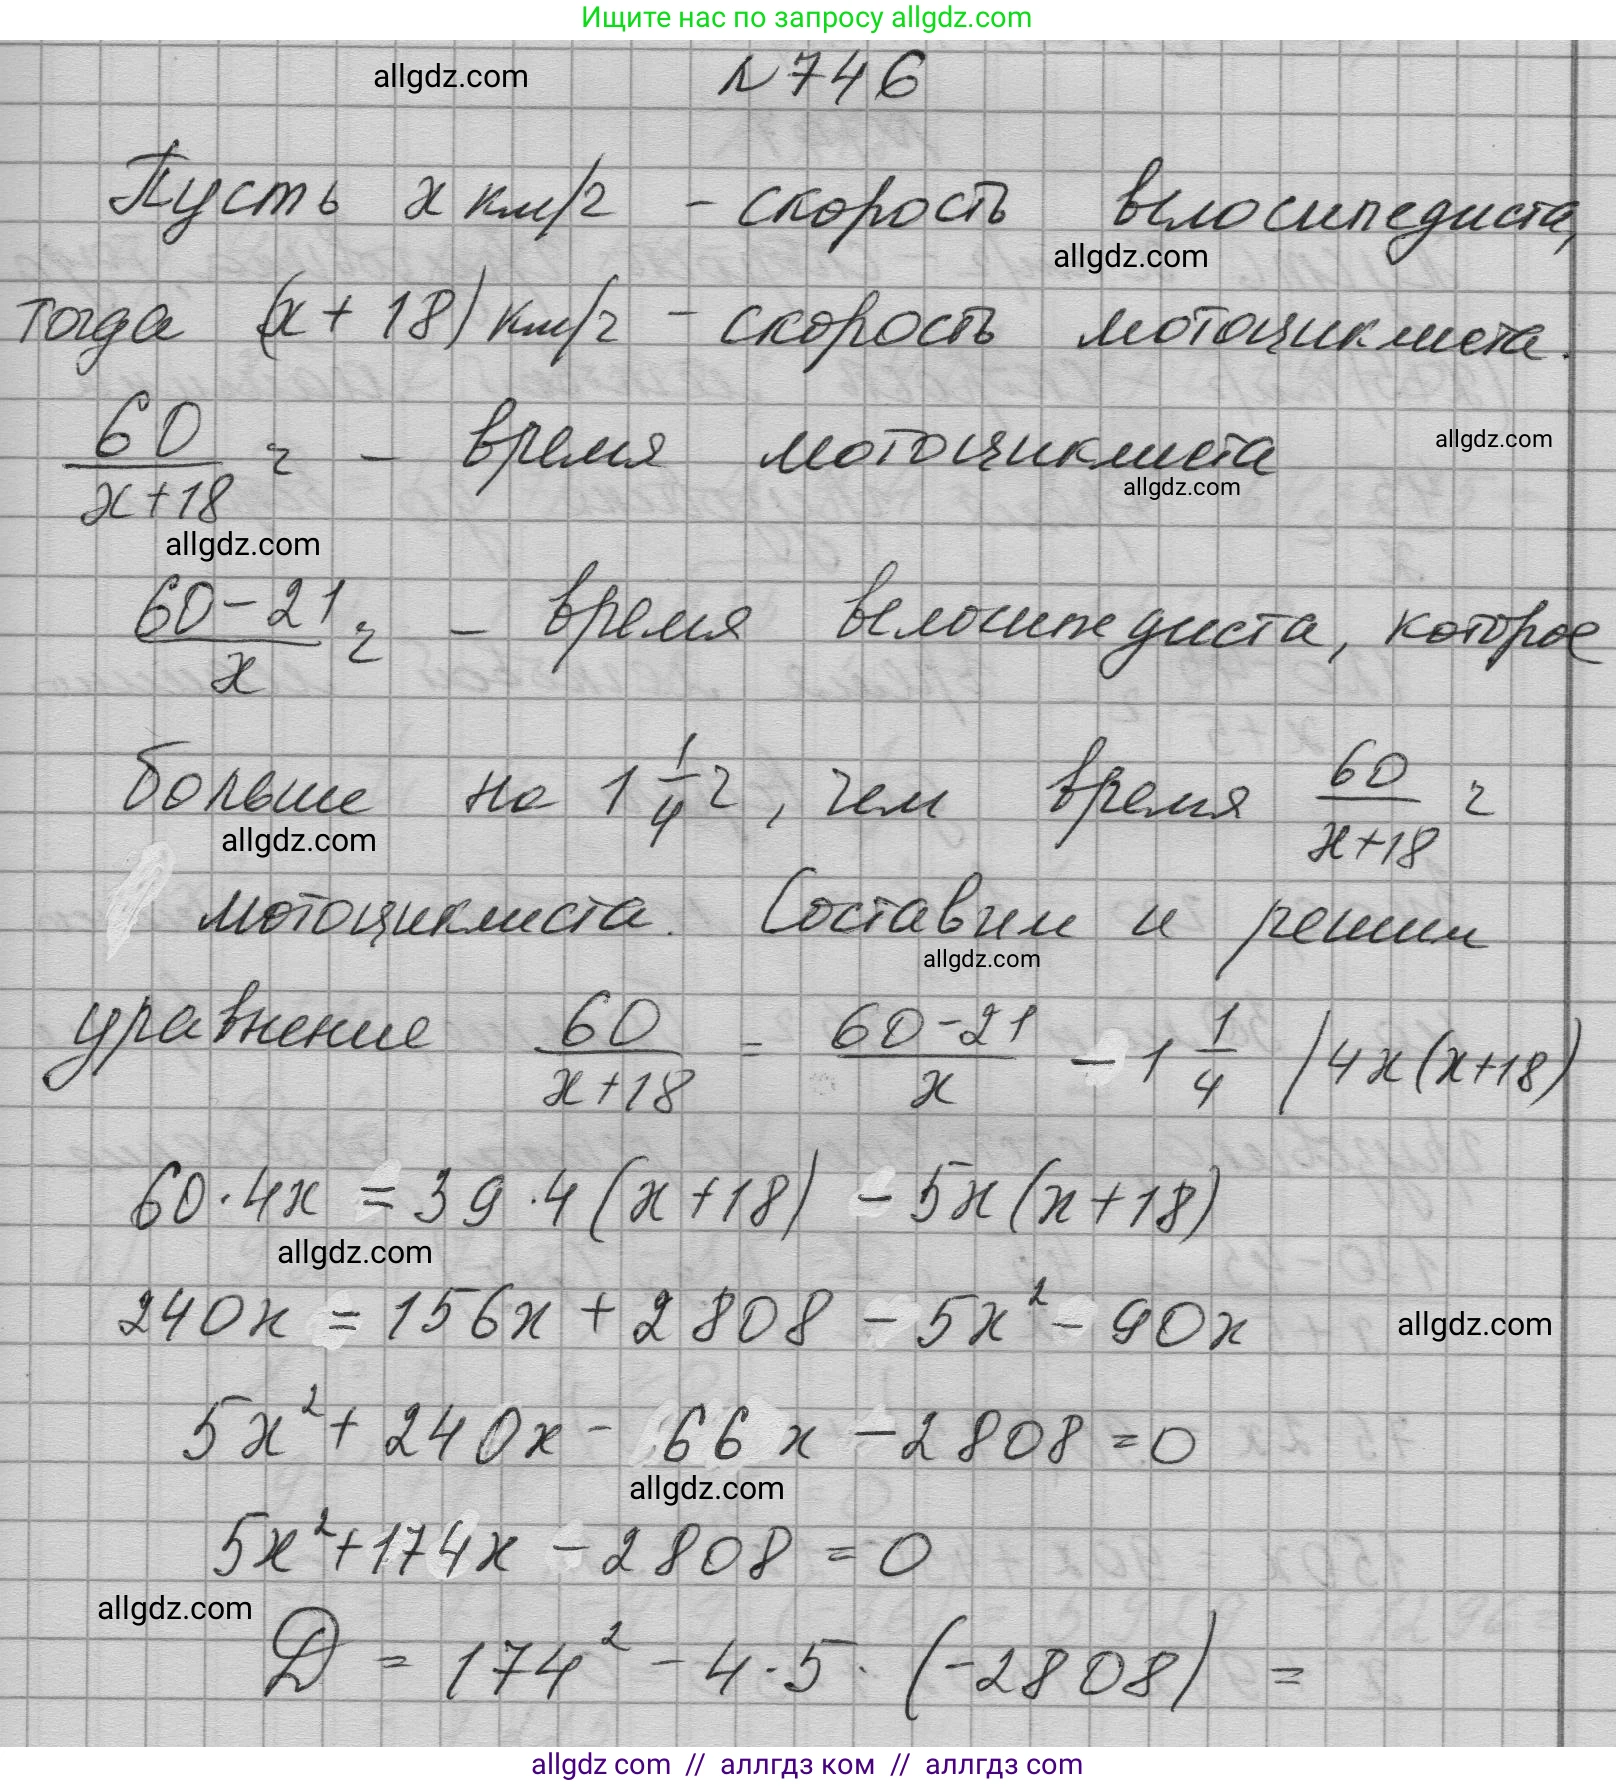 Ищите нас по запросу allgdz.com
allgdz.com
№746
Пусть x км/ч - скорость велосипедиста,
allgdz.com
тогда (x+18) км/ч - скорость мотоциклиста.
60/(x+18) ч - время мотоциклиста
allgdz.com
allgdz.com
allgdz.com
(60-21)/x ч - время велосипедиста, которое
больше на 1 1/4 ч, чем время 60/(x+18) ч
allgdz.com
мотоциклиста. Составим и решим
allgdz.com
уравнение 60/(x+18) = (60-21)/x - 1 1/4 /4x(x+18)
60·4x = 39·4(x+18) - 5x(x+18)
allgdz.com
240x = 156x + 2808 - 5x² - 90x
allgdz.com
5x² + 240x - 66x - 2808 = 0
allgdz.com
5x² + 174x - 2808 = 0
allgdz.com
D = 174² - 4·5·(-2808) =
allgdz.com // аллгдз ком // аллгдз.com